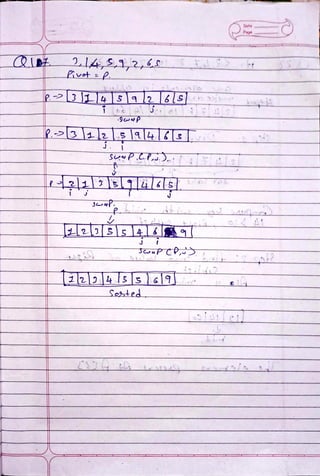 Date
Page
Q1 3, 1, 4, 5, 9, 2, 6 5
Pivot = P.
P → 3 1 4 5 9 2 6 5
i j
swap
P. → 3 1 2 5 9 4 6 5
j i
swap (P, j)
P → 2 1 3 5 9 4 6 5
i j i j
swap
P
1 2 3 5 5 4 6 9
j i
swap (P, j)
1 2 3 4 5 5 6 9
Sorted.